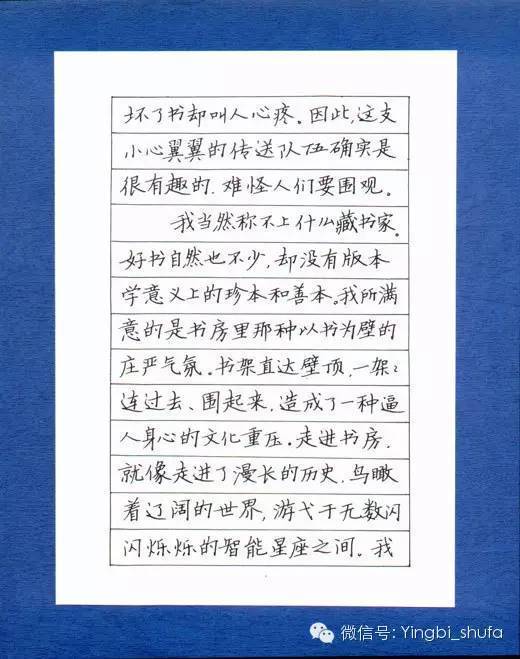 坏了书却叫人心疼。因此,这支
小心翼翼的传送队伍确实是
很有趣的.难怪人们要围观。
我当然称不上什么藏书家。
好书自然也不少,却没有版本
学意义上的珍本和善本。我所满
意的是书房里那种以书为壁的
庄严气氛。书架直达壁顶,一架〻
连过去、围起来,造成了一种逼
人身心的文化重压。走进书房.
就像走进了漫长的历史.鸟瞰
着辽阔的世界,游弋于无数闪
闪烁烁的智能星座之间。我
微信号: Yingbi_shufa